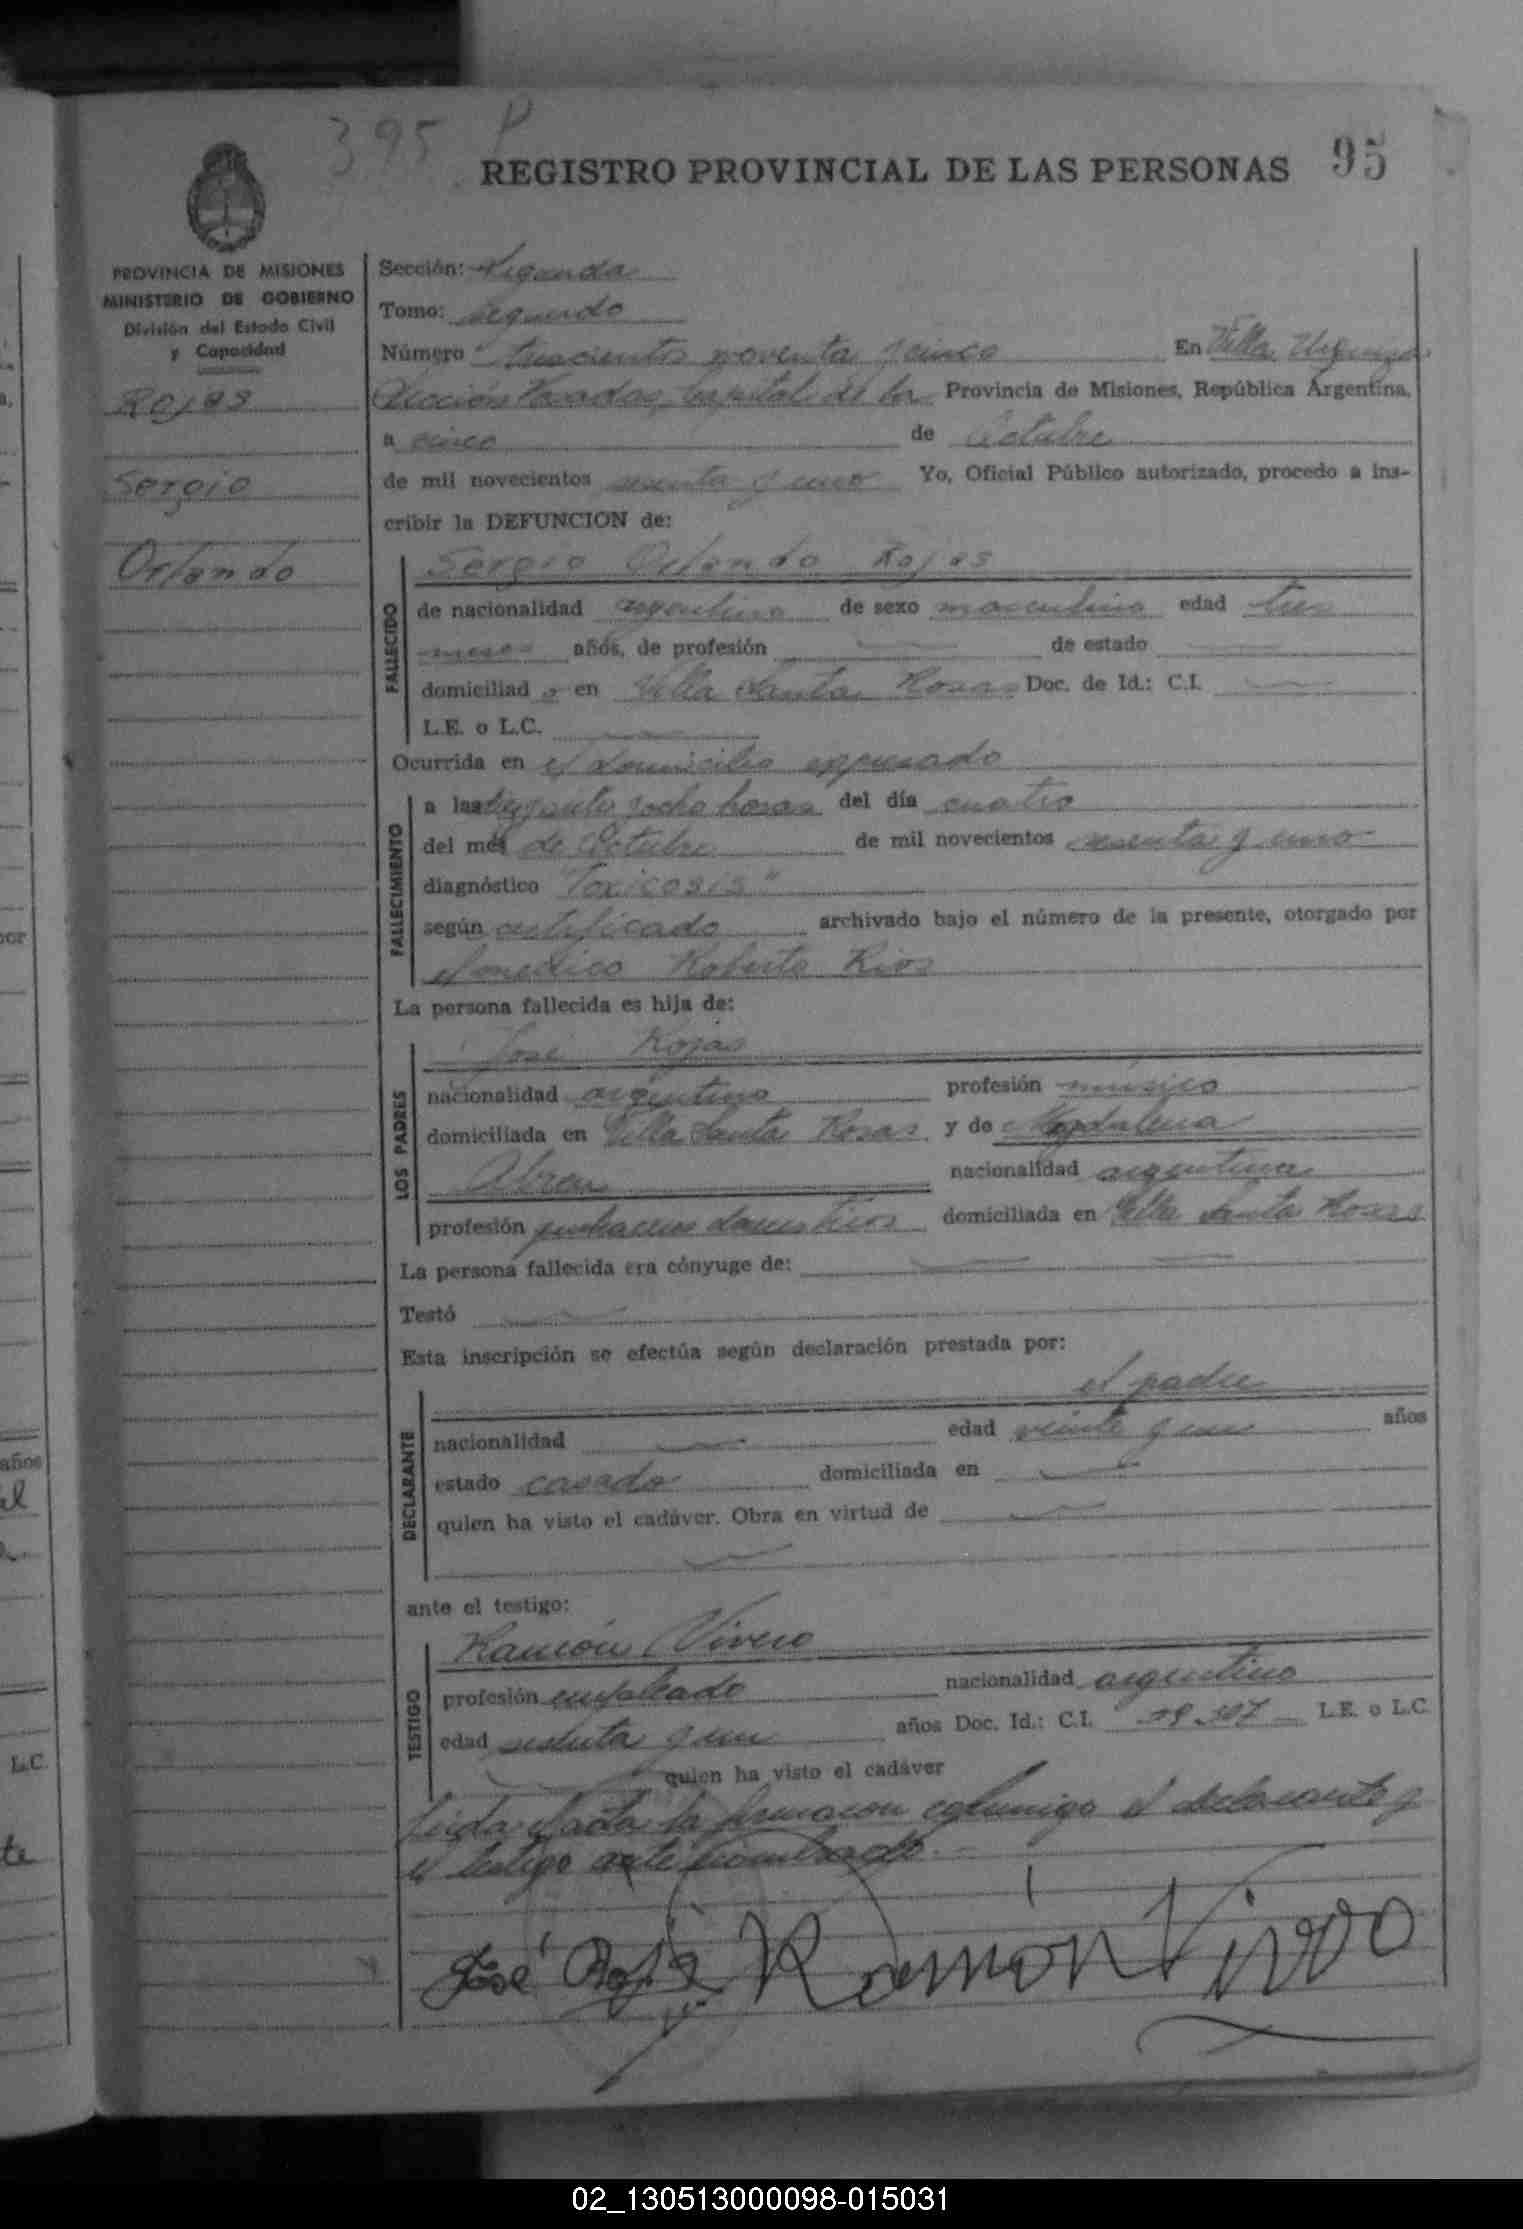 395 P
REGISTRO PROVINCIAL DE LAS PERSONAS 95
PROVINCIA DE MISIONES
MINISTERIO DE GOBIERNO
División del Estado Civil
y Capacidad
Rojas
Sergio
Orlando
Sección: Segunda
Tomo: segundo
Número trescientos noventa y cinco En Villa Urquiza
Sección Posadas, Capital de la Provincia de Misiones, República Argentina,
a cinco de Octubre
de mil novecientos sesenta y uno Yo, Oficial Público autorizado, procedo a ins-
cribir la DEFUNCION de:
FALLECIDO
Sergio Orlando Rojas
de nacionalidad argentina de sexo masculino edad tres
meses años, de profesión de estado
domiciliad o en Villa Santa Rosas Doc. de Id.: C.I.
L.E. o L.C.
Ocurrida en el domicilio expresado
FALLECIMIENTO
a las y ocho horas del día cuatro
del mes de Octubre de mil novecientos sesenta y uno
diagnóstico "Toxicosis"
según certificado archivado bajo el número de la presente, otorgado por
el médico Roberto Rios
La persona fallecida es hija de:
LOS PADRES
José Rojas
nacionalidad argentino profesión músico
domiciliada en Villa Santa Rosas y de Magdalena
Abreu nacionalidad argentina
profesión quehaceres domésticos domiciliada en Villa Santa Rosas
La persona fallecida era cónyuge de:
Testó
Esta inscripción se efectúa según declaración prestada por:
DECLARANTE
el padre
nacionalidad edad veinte y un años
estado casado domiciliada en
quien ha visto el cadáver. Obra en virtud de
ante el testigo:
TESTIGO
Ramón Vivero
profesión empleado nacionalidad argentino
edad sesenta y un años Doc. Id.: C.I. L.E. o L.C.
quien ha visto el cadáver
Leida el acta la firmaron conmigo el declarante y
el testigo ante nombrado.
José Rojas Ramón Vivero
años
L.C.
te
02_130513000098-015031